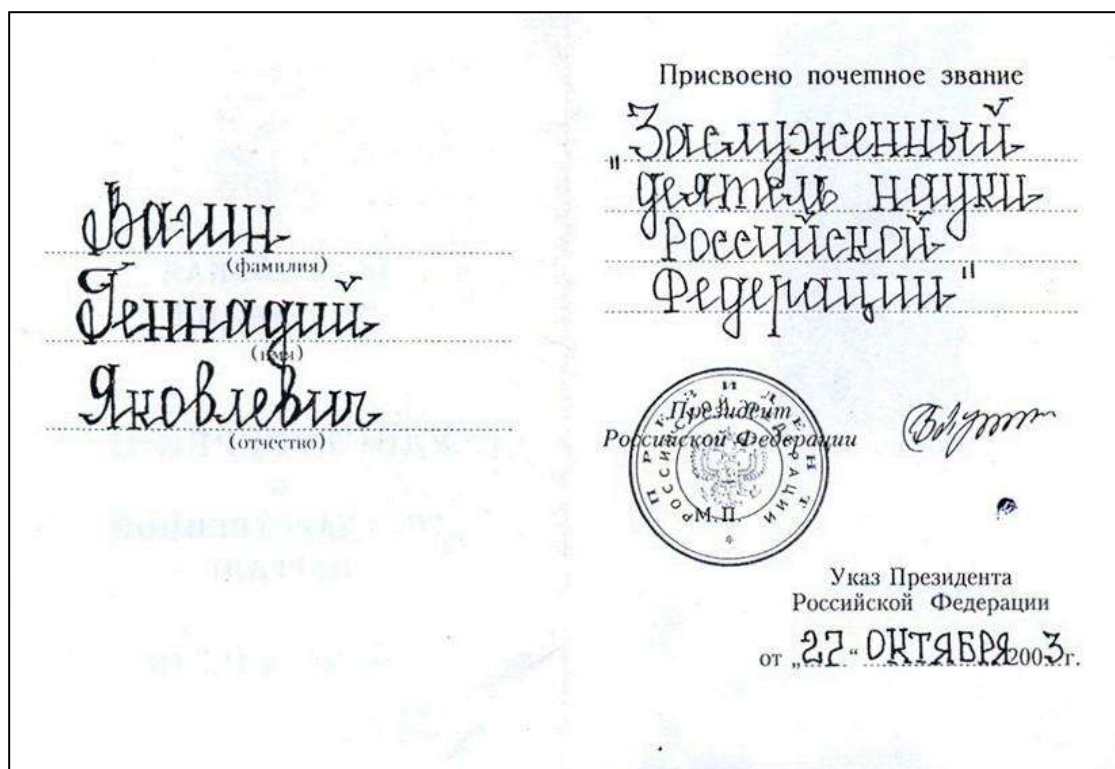 Вагин
(фамилия)
Геннадий
(имя)
Яковлевич
(отчество)
Присвоено почетное звание
"Заслуженный
деятель науки
Российской
Федерации"
Президент
Российской Федерации
ПРЕЗИДЕНТ
РОССИЙСКОЙ ФЕДЕРАЦИИ
М.П.
Указ Президента
Российской Федерации
от „27“ ОКТЯБРЯ 2003 г.